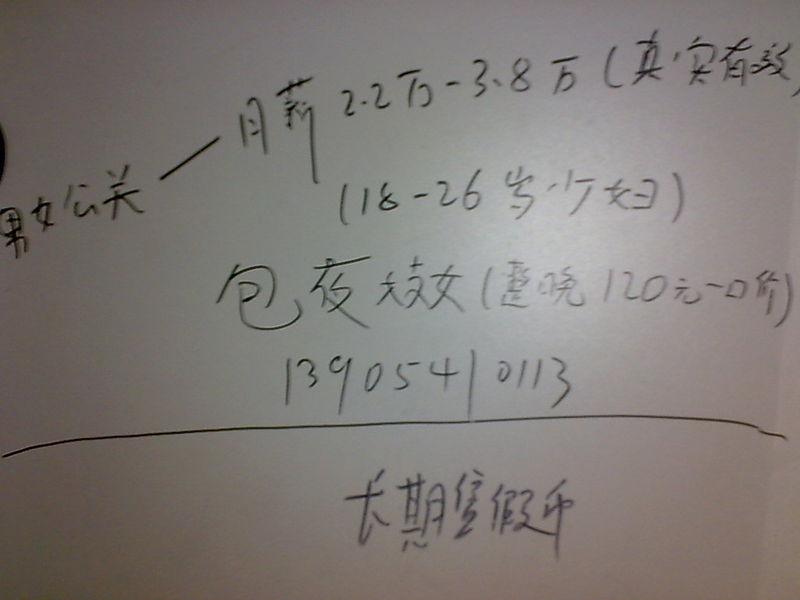 男女公关—月薪2.2万-3.8万(真实有效)
(18-26岁少妇)
包夜妓女(整晚120元一口价)
13905410113
长期售假币